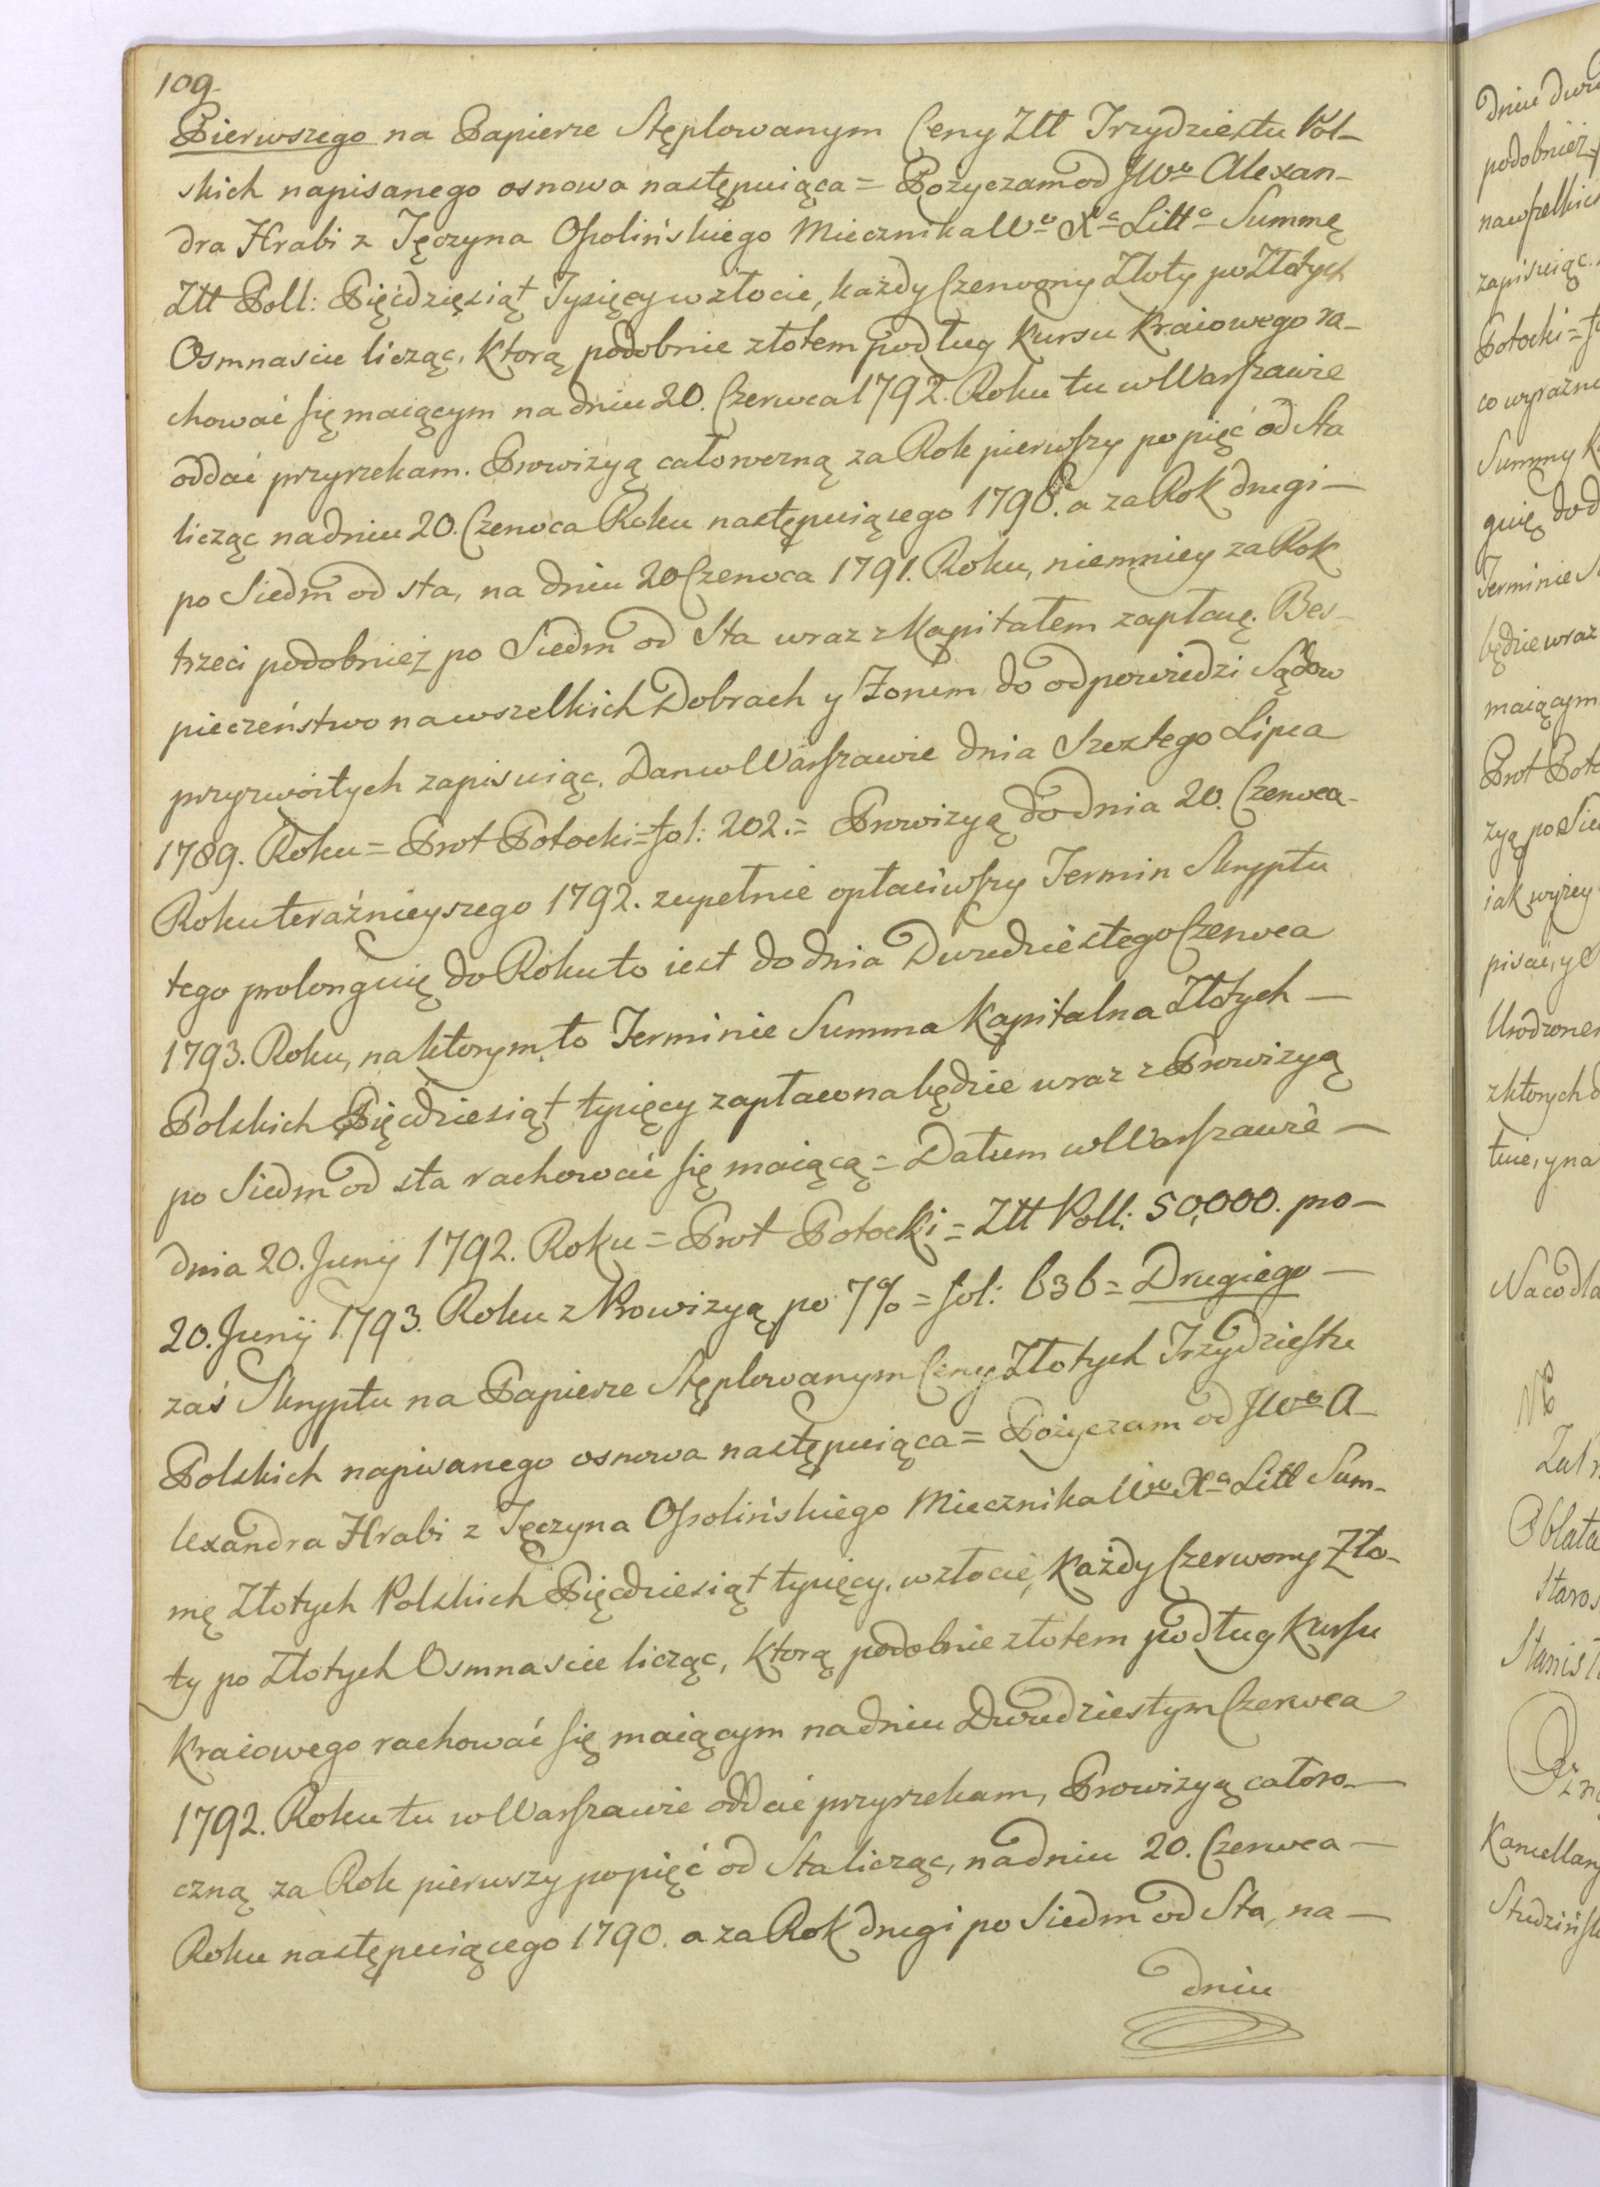 109.
Pierwszego na Papierze Stęplowanym Ceny Ztt Trzydziestu Pol-
skich napisanego osnowa następuiąca = Pożyczam od JWo Alexan-
dra Hrabi z Tęczyna Ossolińskiego Miecznika Wo Xa Litto Summę
Ztt Poll: Pięćdziesiąt Tysięcy w złocie, każdy Czerwony Złoty po Złotych
Osmnascie licząc, ktorą podobnie złotem podług kursu kraiowego ra-
chować się maiącym na dniu 20. Czerwca 1792. Roku tu w Warszawie
oddać przyrzekam. Prowizyą całoroczną za Rok pierwszy po pięć od Sta
licząc na dniu 20. Czerwca Roku następuiącego 1790. a za Rok drugi —
po Siedm od sta, na dniu 20 Czerwca 1791. Roku, niemniey za Rok
trzeci podobnież po Siedm od Sta wraz z Kapitałem zapłacę. Bes-
pieczeństwo na wszelkich Dobrach y Forum do odpowiedzi Sądow
przyzwoitych zapisuiąc. Dan w Warszawie dnia Szostego Lipca
1789. Roku = Prot Potocki = fol: 202. = Prowizyą do dnia 20. Czerwca
Roku teraźnieyszego 1792. zupełnie opłaciwszy Termin Skryptu
tego prolonguię do Roku to iest do dnia Dwudziestego Czerwca
1793. Roku, na ktorym to Terminie Summa Kapitalna Złotych —
Polskich Pięćdziesiąt tysięcy zapłacona będzie wraz z Prowizyą
po Siedm od sta rachować się maiącą = Datum w Warszawie —
dnia 20. Junij 1792. Roku = Prot Potocki = Ztt Poll: 50,000. pro —
20. Junij 1793. Roku z Prowizyą po 7% = fol: 636 = Drugiego —
zaś Skryptu na Papierze Stęplowanym Ceny Złotych Trzydziestu
Polskich napisanego osnowa następuiąca = Pożyczam od JWo A-
lexandra Hrabi z Tęczyna Ossolińskiego Miecznika Wo Xa Litt Sum-
mę Złotych Polskich Pięćdziesiąt tysięcy, w złocie, każdy Czerwony Zło-
ty po Złotych Osmnascie licząc, ktorą podobnie złotem podług kursu
kraiowego rachować się maiącym na dniu Dwudziestym Czerwca
1792. Roku tu w Warszawie oddać przyrzekam, Prowizyą całoro-
czną za Rok pierwszy po pięć od Sta licząc, na dniu 20. Czerwca —
Roku następuiącego 1790. a za Rok drugi po Siedm od Sta, na —
dniu